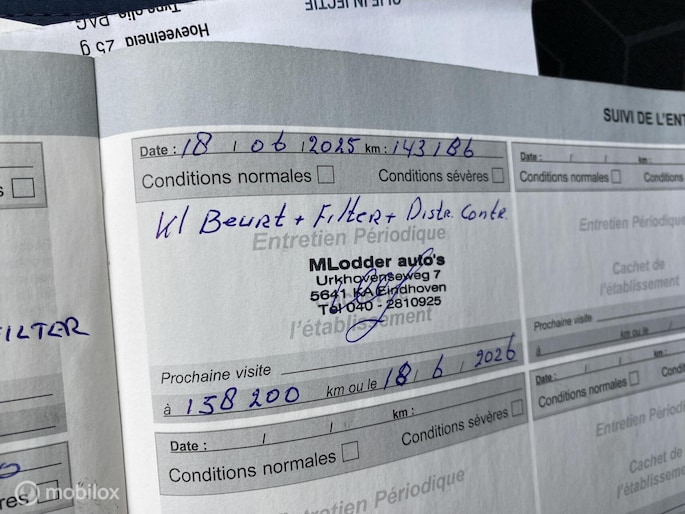 CLIM INJECTIE
Type olie PAG
Hoeveelheid 25 g
SUIVI DE L'ENT
Date : 18 / 06 / 2025 km : 143186
Conditions normales
Conditions sévères
Kl BEURT + FILTER + DISTR. CONTR.
Entretien Périodique
MLodder auto's
Urkhovenseweg 7
5641 KA Eindhoven
Tel 040 - 2810925
l'établissement
Prochaine visite
à 158 200 km ou le 18 / 6 / 2026
Date : / / km :
Conditions normales
Conditions sévères
Entretien Périodique
Date : / / km :
Conditions normales
Conditions
Entretien Périod
Cachet de
l'établissement
Prochaine visite
à km ou le / /
Date : / /
Conditions normales
Entretien Périod
Cachet de
l'établisseme
FILTER
res
mobilox